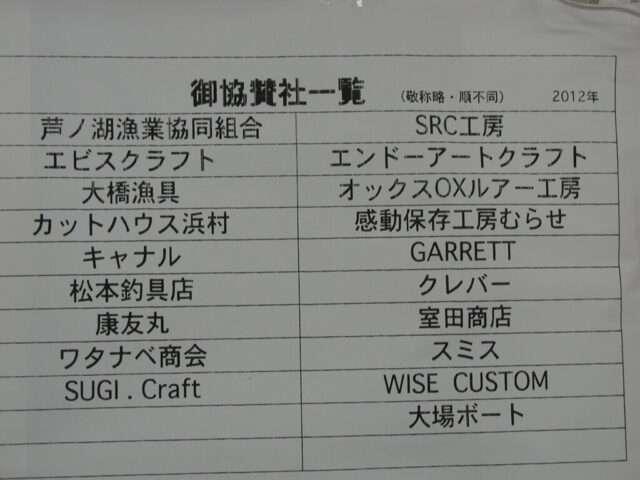 御協賛社一覧 (敬称略・順不同) 2012年
芦ノ湖漁業協同組合 SRC工房
エビスクラフト エンドーアートクラフト
大橋漁具 オックスOXルアー工房
カットハウス浜村 感動保存工房むらせ
キャナル GARRETT
松本釣具店 クレバー
康友丸 室田商店
ワタナベ商会 スミス
SUGI . Craft WISE CUSTOM
大場ボート